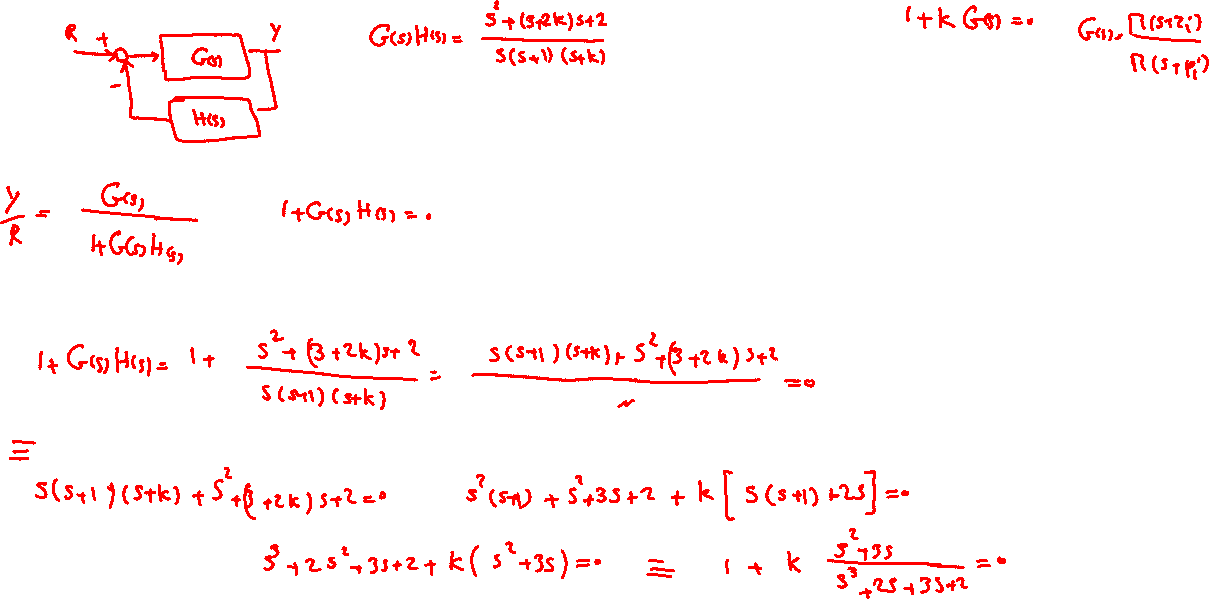 R + Y G(s)H(s) = s² + (3+2k)s+2 / s(s+1)(s+k) 1+k G(s) = 0 G(s) = Π(s+zᵢ) / Π(s+pᵢ)
G(s)
-
H(s)
Y/R = G(s) / 1+G(s)H(s) 1+G(s)H(s) = 0
1+G(s)H(s) = 1+ s²+(3+2k)s+2 / s(s+1)(s+k) = s(s+1)(s+k)+s²+(3+2k)s+2 / " = 0
≡
s(s+1)(s+k)+s²+(3+2k)s+2=0 s²(s+1)+s²+3s+2+k[s(s+1)+2s]=0
s³+2s²+3s+2+k(s²+3s)=0 ≡ 1+k s²+3s / s³+2s+3s+2 = 0